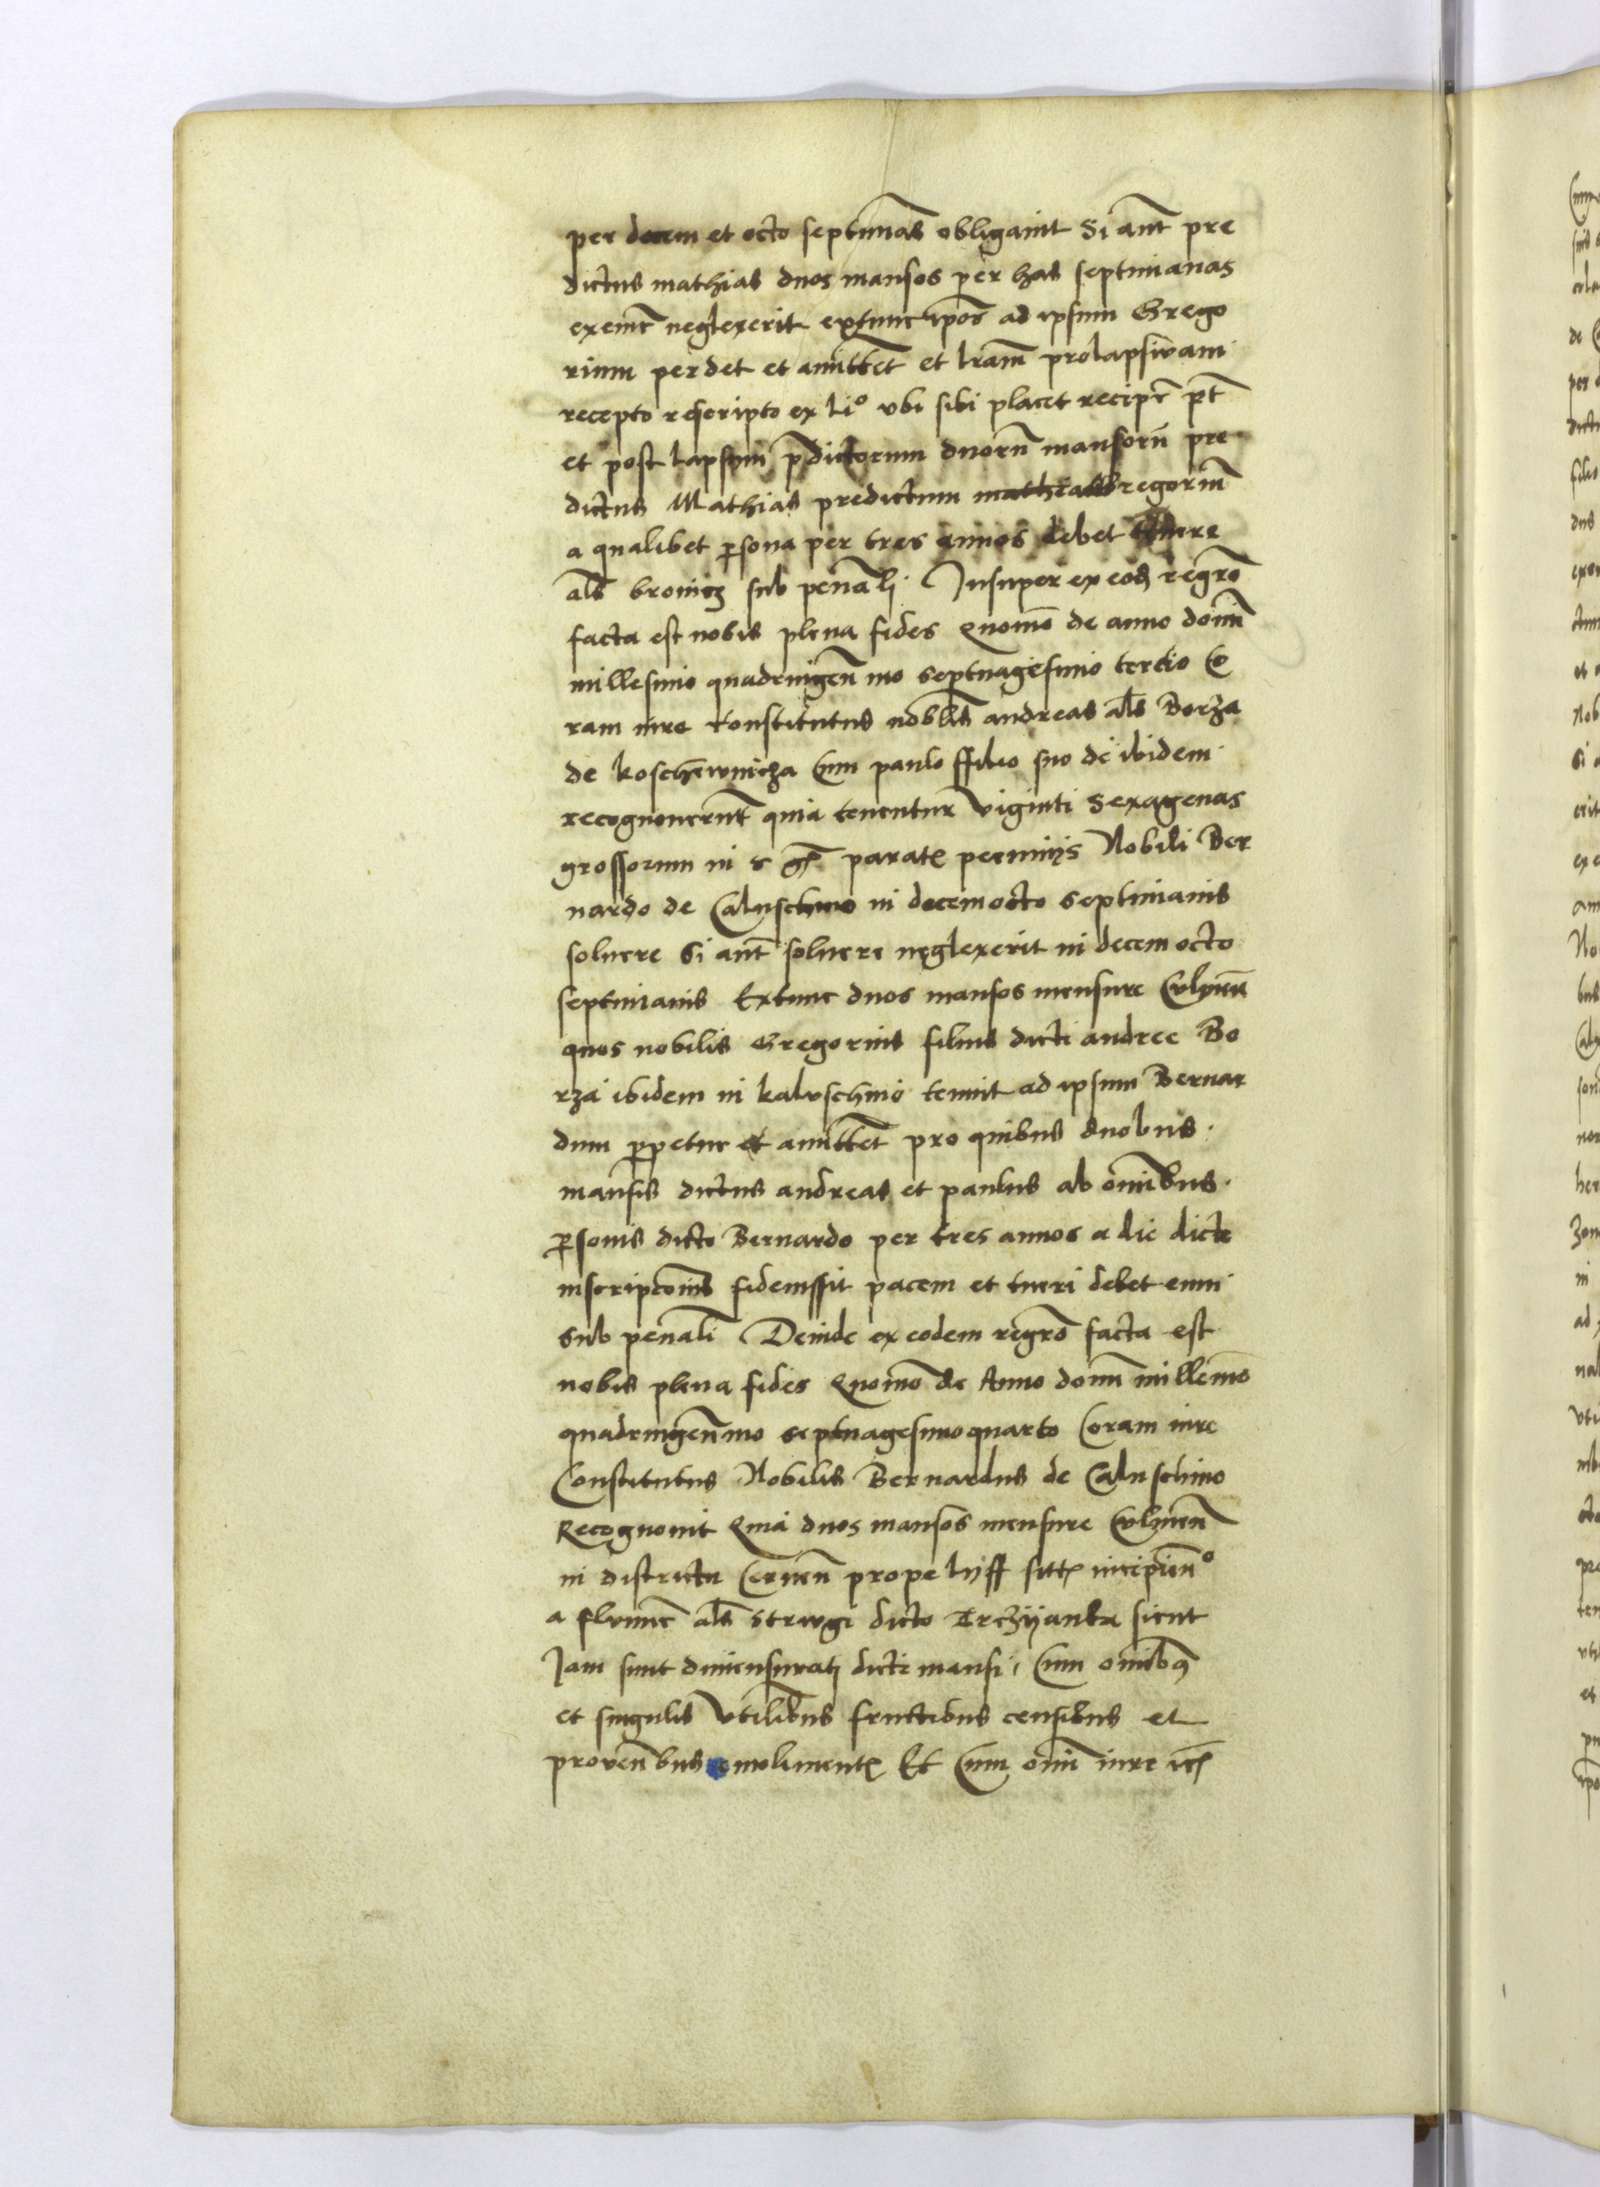 per decem et octo septimnas obligauit Si aut pre
dictus mathias duos mansos per has septimanas
exeme neglexerit extunc ipos ad ipsum Grego
rium perdet et amittet et lram prolapsiuam
recepto rescripto ex lio vbi sibi placet recipe pt
et post lapsum pdictorum duoru mansoru pre
dictus Mathias predictum mathia Gregoriu
a qualibet psona per tres annos debet tuere
als bronicz sub pena li Insuper ex eod regro
facta est nobis plena fides Quomo de anno domi
millesimo quadringenmo septuagesimo tertio Co
ram iure Constitutus nobilis andreas als Borza
de koschewnicza Cum paulo ffilio suo de ibidem
recognouerunt quia tenentur viginti Sexagenas
grossorum in gr parate pecunijs Nobili Ber
nardo de Caluschino in decemocto septimanis
soluere Si aut soluere neglexerit in decem octo
septimanis Extunc duos mansos mensure Culmen
quos nobilis Gregorius filius dicti andree Bo
rza ibidem in kaluschino tenuit ad ipsum Bernar
dum ppetue et amittet pro quibus duobus
mansis dictus andreas et paulus ab omibus
psonis dicto Bernardo per tres annos a die dicte
inscripcois fideiussit pacem et tueri debet eum
sub penali Deinde ex eodem regro facta est
nobis plena fides Quomo de Anno domi millemo
quadringenmo septuagesimoquarto Coram iure
Constitutus Nobilis Bernardus de Caluschino
Recognouit Quia duos mansos mensure Culmen
in districtu Cernen prope lijff sitt incipien
a flumie als strugi dicto Trczijanka sicut
Jam sunt dimensurati dicti mansi Cum omibus
et singulis Vtilibus fructibus censibus et
prouenbus emoliment Et Cum omi iure